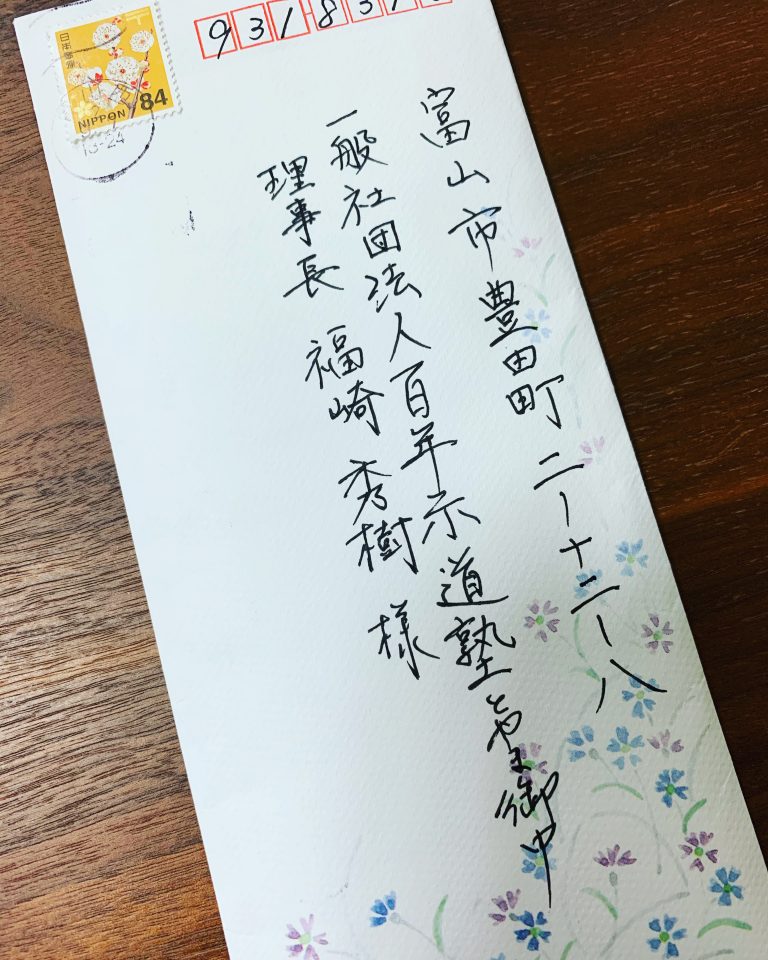 日本郵便
84
NIPPON
9318313
富山市豊田町二ー十二ー八
一般社団法人百年示道塾とやま御中
理事長 福崎 秀樹 様